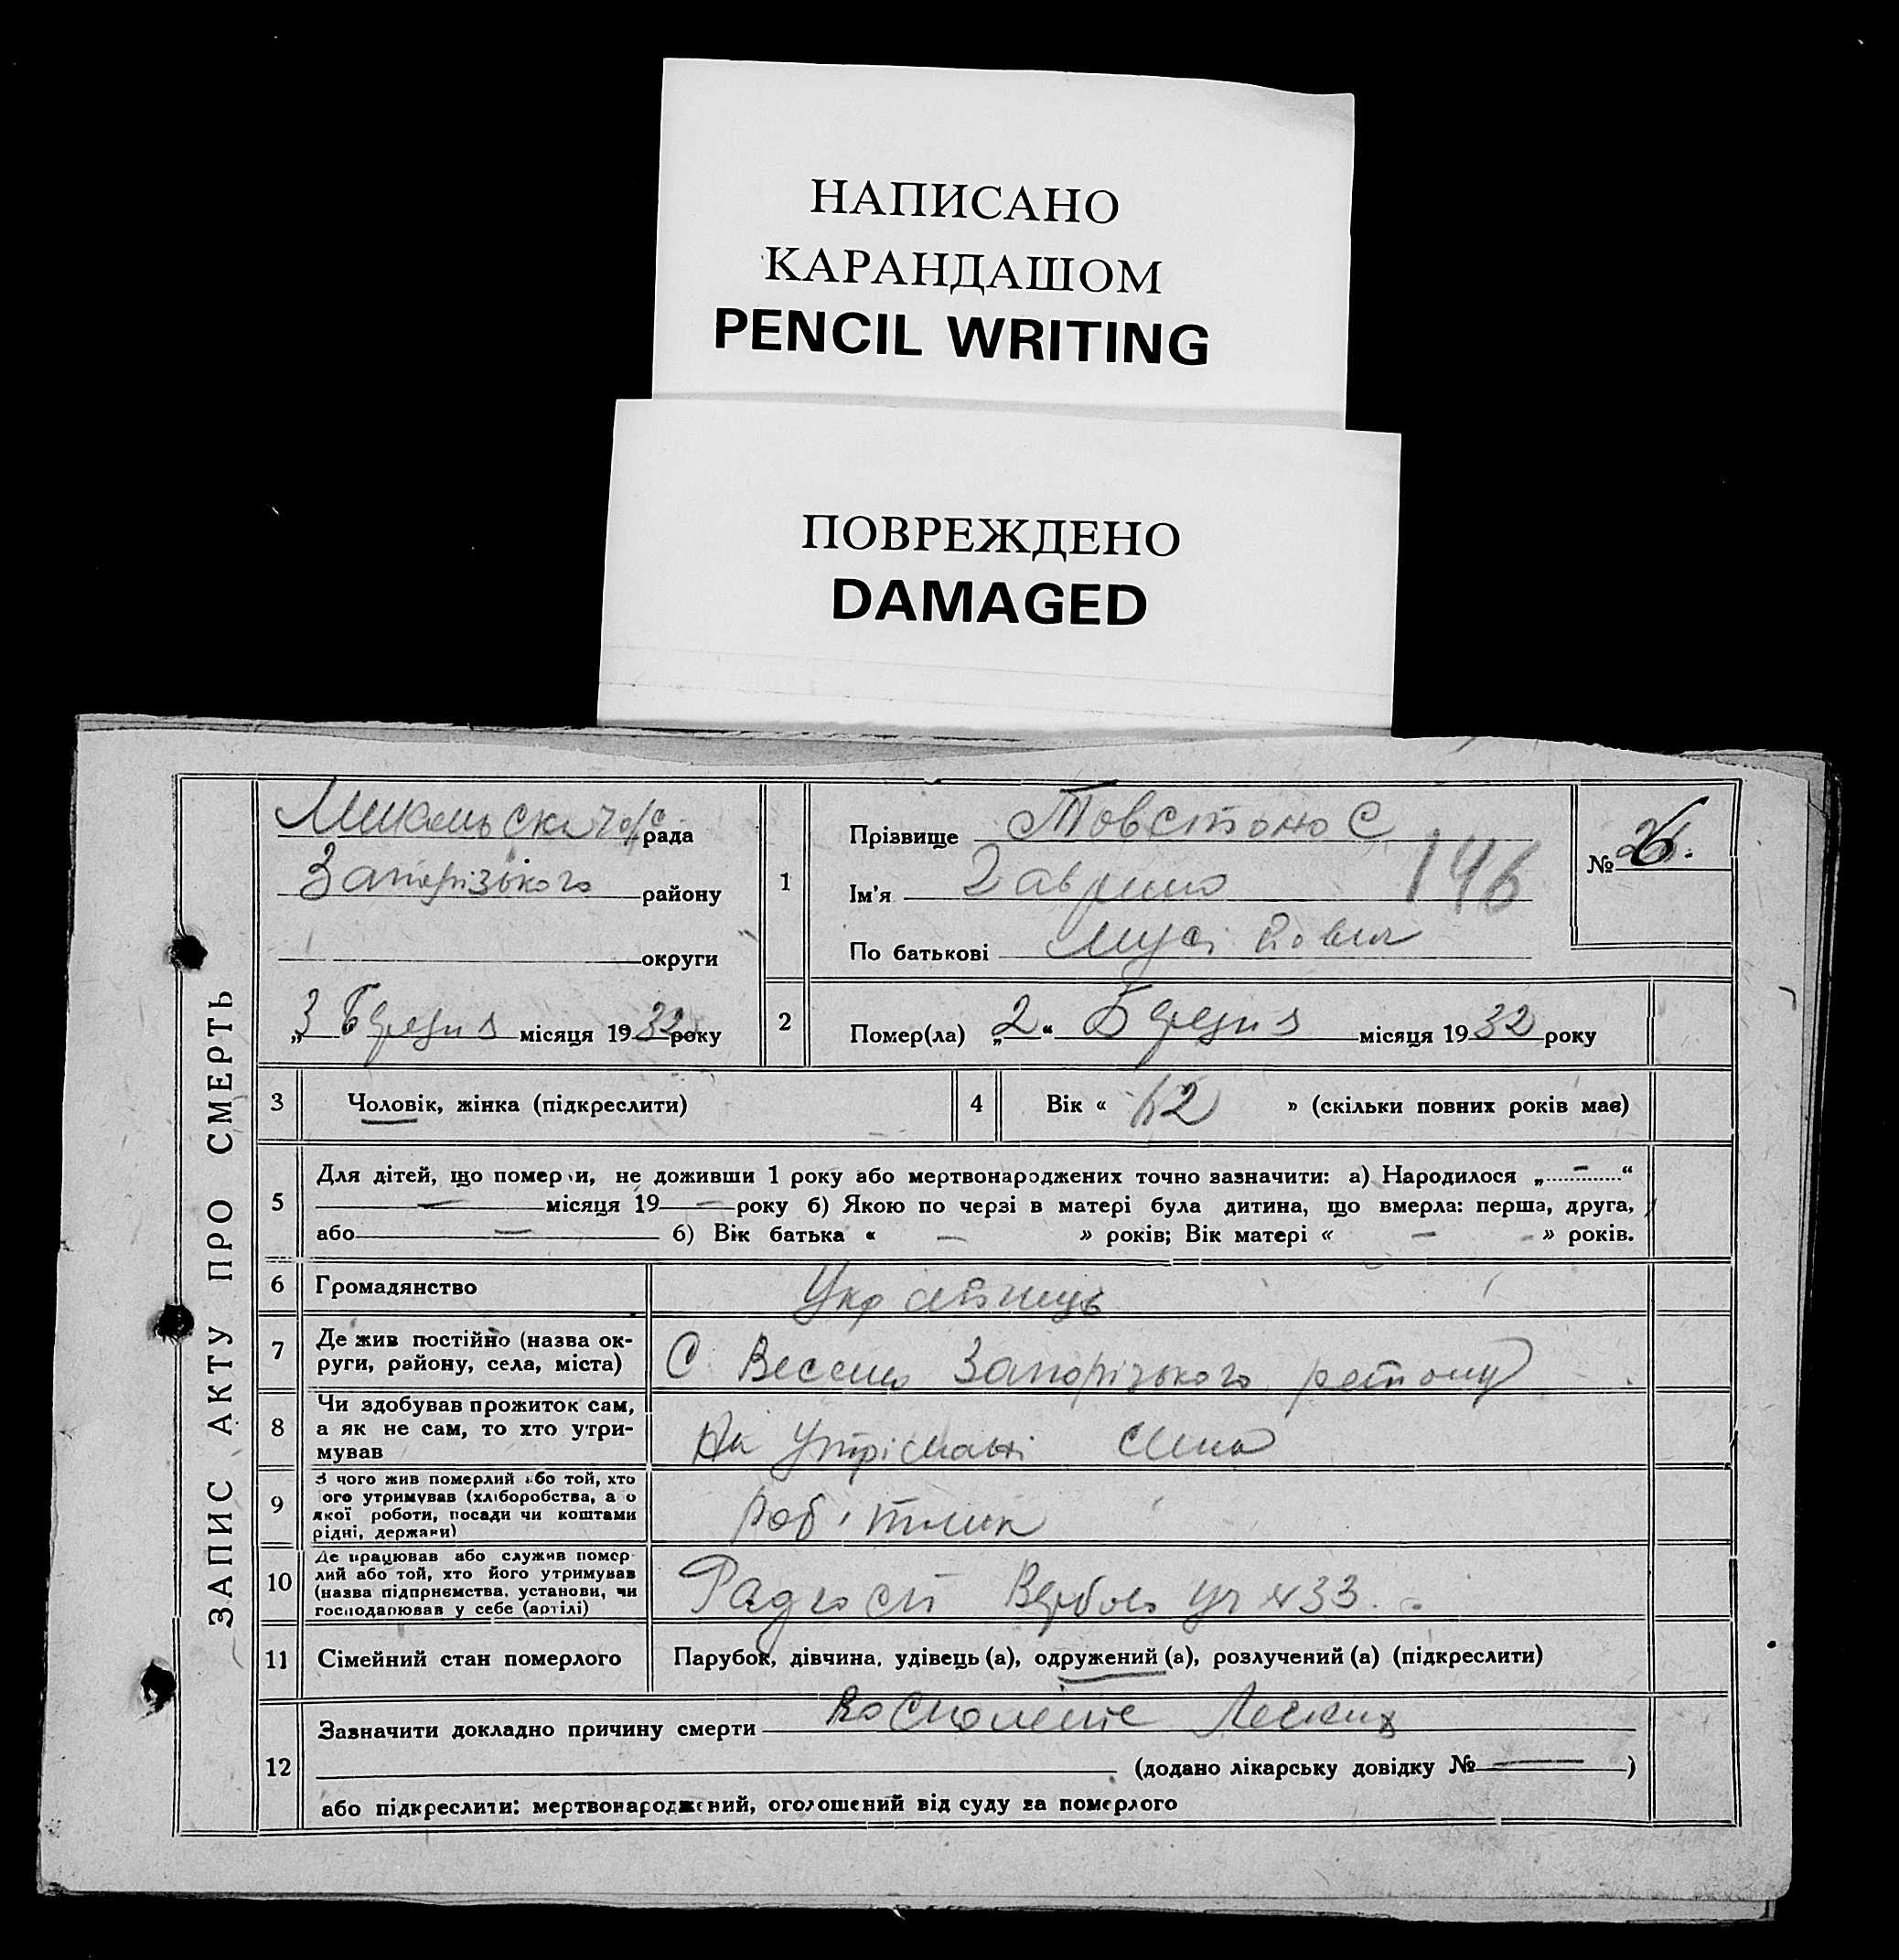 НАПИСАНО
КАРАНДАШОМ
PENCIL WRITING
ПОВРЕЖДЕНО
DAMAGED
ЗАПИС АКТУ ПРО СМЕРТЬ
рада
Запорізького району
округи
„3 Березня місяця 1932 року
1
Прізвище Товстонос
Ім'я Гаврило 146
По батькові Мусійович
№ 26.
2
Помер(ла) „2“ Березня місяця 1932 року
3 Чоловік, жінка (підкреслити)
4 Вік « » (скільки повних років має)
5
Для дітей, що померли, не доживши 1 року або мертвонароджених точно зазначити: а) Народилося „ — “
— місяця 19 — року б) Якою по черзі в матері була дитина, що вмерла: перша, друга,
або — б) Вік батька « — » років; Вік матері « — » років.
6 Громадянство Українець
7
Де жив постійно (назва ок-
руги, району, села, міста)
С Веселе Запорізького району
8
Чи здобував прожиток сам,
а як не сам, то хто утри-
мував
На утріманні сина
9
З чого жив померлий або той, хто
ого утримував (хліборобства, а о
якої роботи, посади чи коштами
рідні, держави)
робітник
10
Де працював або служив помер-
лий або той, хто його утримував
(назва підприємства, установи, чи
господарював у себе (артілі)
Радгосп уч №33.
11 Сімейний стан померлого
Парубок, дівчина, удівець (а), одружений (а), розлучений (а) (підкреслити)
12
Зазначити докладно причину смерти Легких
(додано лікарську довідку № — )
або підкреслити: мертвонароджений, оголошений від суду за померлого